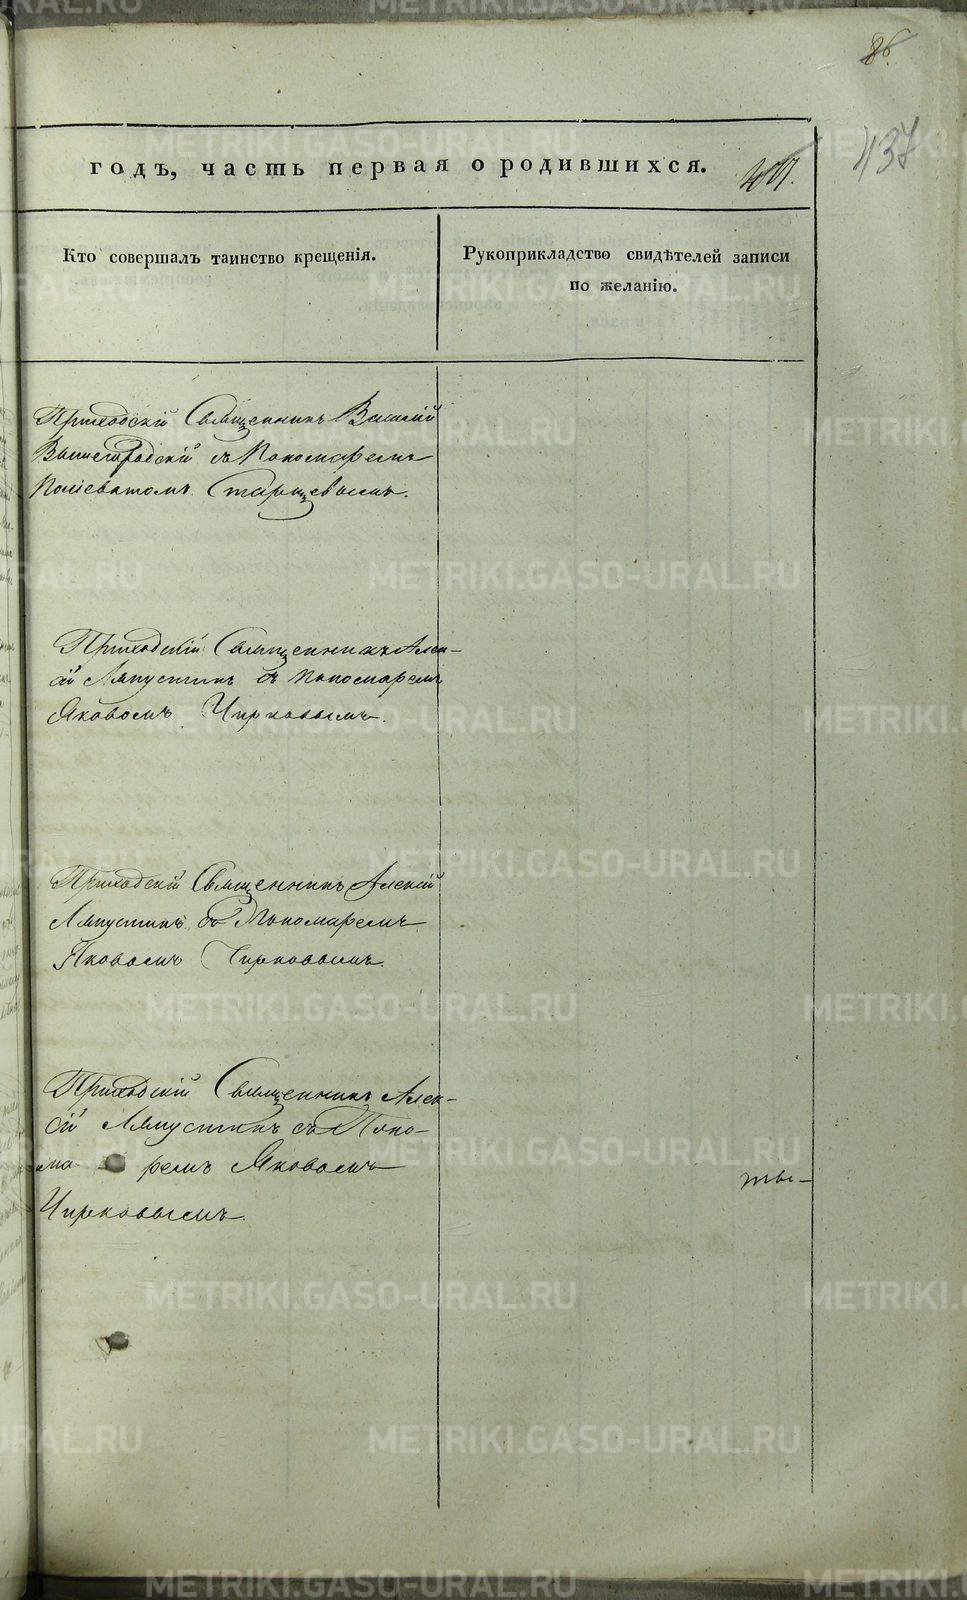 86.
437
годъ, часть первая о родившихся.
Кто совершалъ таинство крещенія.
Рукоприкладство свидѣтелей записи
по желанію.
Приходскій Священникъ Василій
Вышегородскій съ Пономаремъ
Старцевымъ.
Приходскій Священникъ Алек-
сій Ляпустинъ съ Пономаремъ
Яковомъ Чирковымъ.
Приходскій Священникъ Алексій
Ляпустинъ съ Пономаремъ
Яковомъ Чирковымъ.
Приходскій Священникъ Алек-
сій Ляпустинъ съ Поно-
ма- ремъ Яковомъ
Чирковымъ.
METRIKI.GASO-URAL.RU